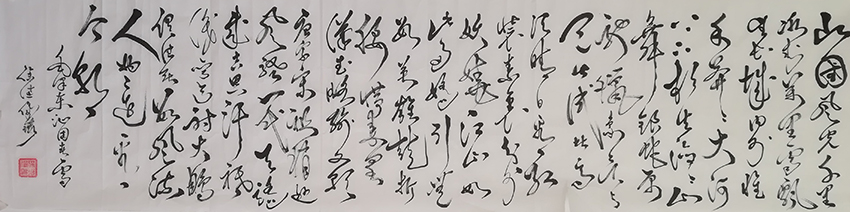 北国风光千里
冰封万里雪飘
望长城内外惟
余莽莽大河
上下顿失滔滔山
舞银蛇原
驰蜡象欲与
天公试比高
须晴日看红
装素裹分外
妖娆江山如
此多娇引无
数英雄竞折
腰惜秦皇
汉武略输文采
唐宗宋祖稍逊
风骚一代天骄
成吉思汗只
识弯弓射大雕
俱往矣数风流
人物还看
今朝
毛泽东沁园春雪